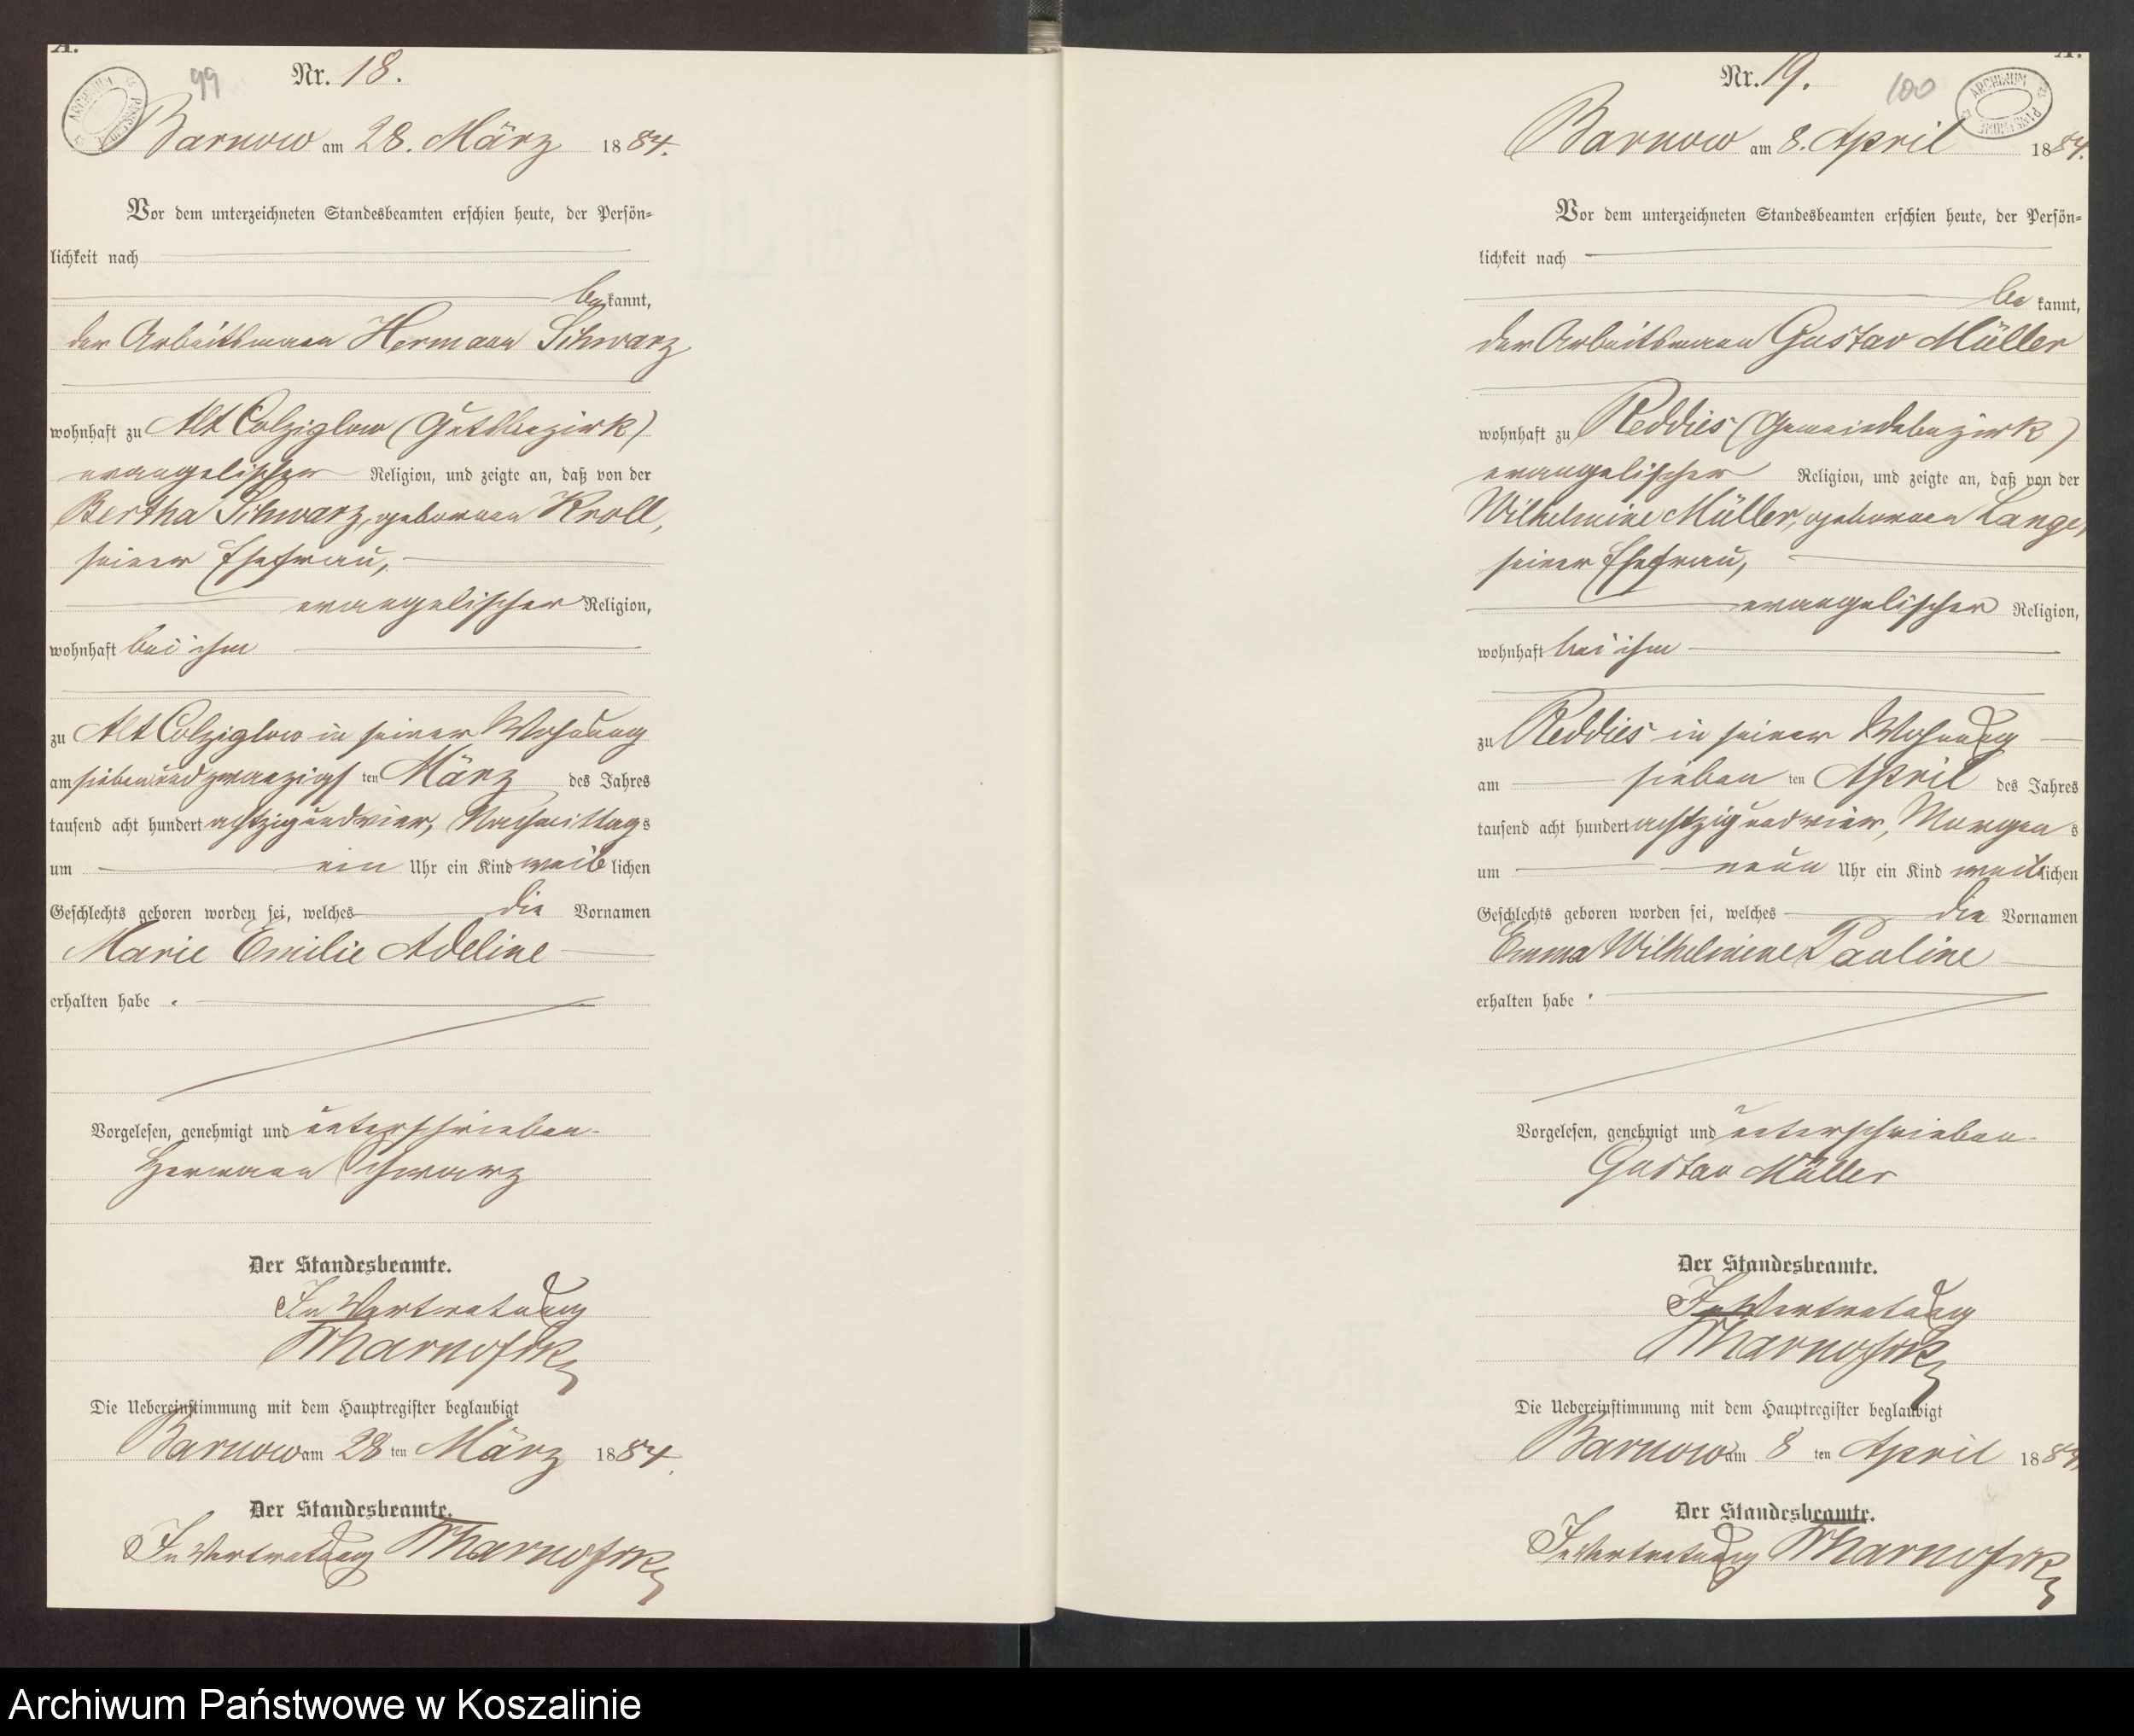 A.
99
Nr. 18.
Barnow am 28. März 1884.
Vor dem unterzeichneten Standesbeamten erschien heute, der Persön=
lichkeit nach
bekannt,
der Arbeitsmann Hermann Schwarz
wohnhaft zu Alt Colziglow (Gutsbezirk)
evangelischer Religion, und zeigte an, daß von der
Bertha Schwarz, geborenen Kroll,
seiner Ehefrau,
evangelischer Religion,
wohnhaft bei ihm
zu Alt Colziglow in seiner Wohnung
am siebenundzwanzigsten März des Jahres
tausend acht hundert achtzig und vier, Nachmittags
um ein Uhr ein Kind weiblichen
Geschlechts geboren worden sei, welches die Vornamen
Marie Emilie Adeline
erhalten habe.
Vorgelesen, genehmigt und unterschrieben.
Hermann Schwarz
Der Standesbeamte.
In Vertretung
Die Uebereinstimmung mit dem Hauptregister beglaubigt
Barnow am 28ten März 1884.
Der Standesbeamte.
In Vertretung
A.
Nr. 19.
100
ARCHIWUM
Barnow am 8. April 1884.
Vor dem unterzeichneten Standesbeamten erschien heute, der Persön=
lichkeit nach
bekannt,
der Arbeitsmann Gustav Müller
wohnhaft zu Reddies (Gemeindebezirk)
evangelischer Religion, und zeigte an, daß von der
Wilhelmine Müller, geborenen Lange,
seiner Ehefrau,
evangelischer Religion,
wohnhaft bei ihm
zu Reddies in seiner Wohnung
am siebenten April des Jahres
tausend acht hundert achtzig und vier, Morgens
um neun Uhr ein Kind weiblichen
Geschlechts geboren worden sei, welches die Vornamen
Emma Wilhelmine Pauline
erhalten habe.
Vorgelesen, genehmigt und unterschrieben.
Gustav Müller
Der Standesbeamte.
In Vertretung
Die Uebereinstimmung mit dem Hauptregister beglaubigt
Barnow am 8ten April 1884.
Der Standesbeamte.
In Vertretung
Archiwum Państwowe w Koszalinie